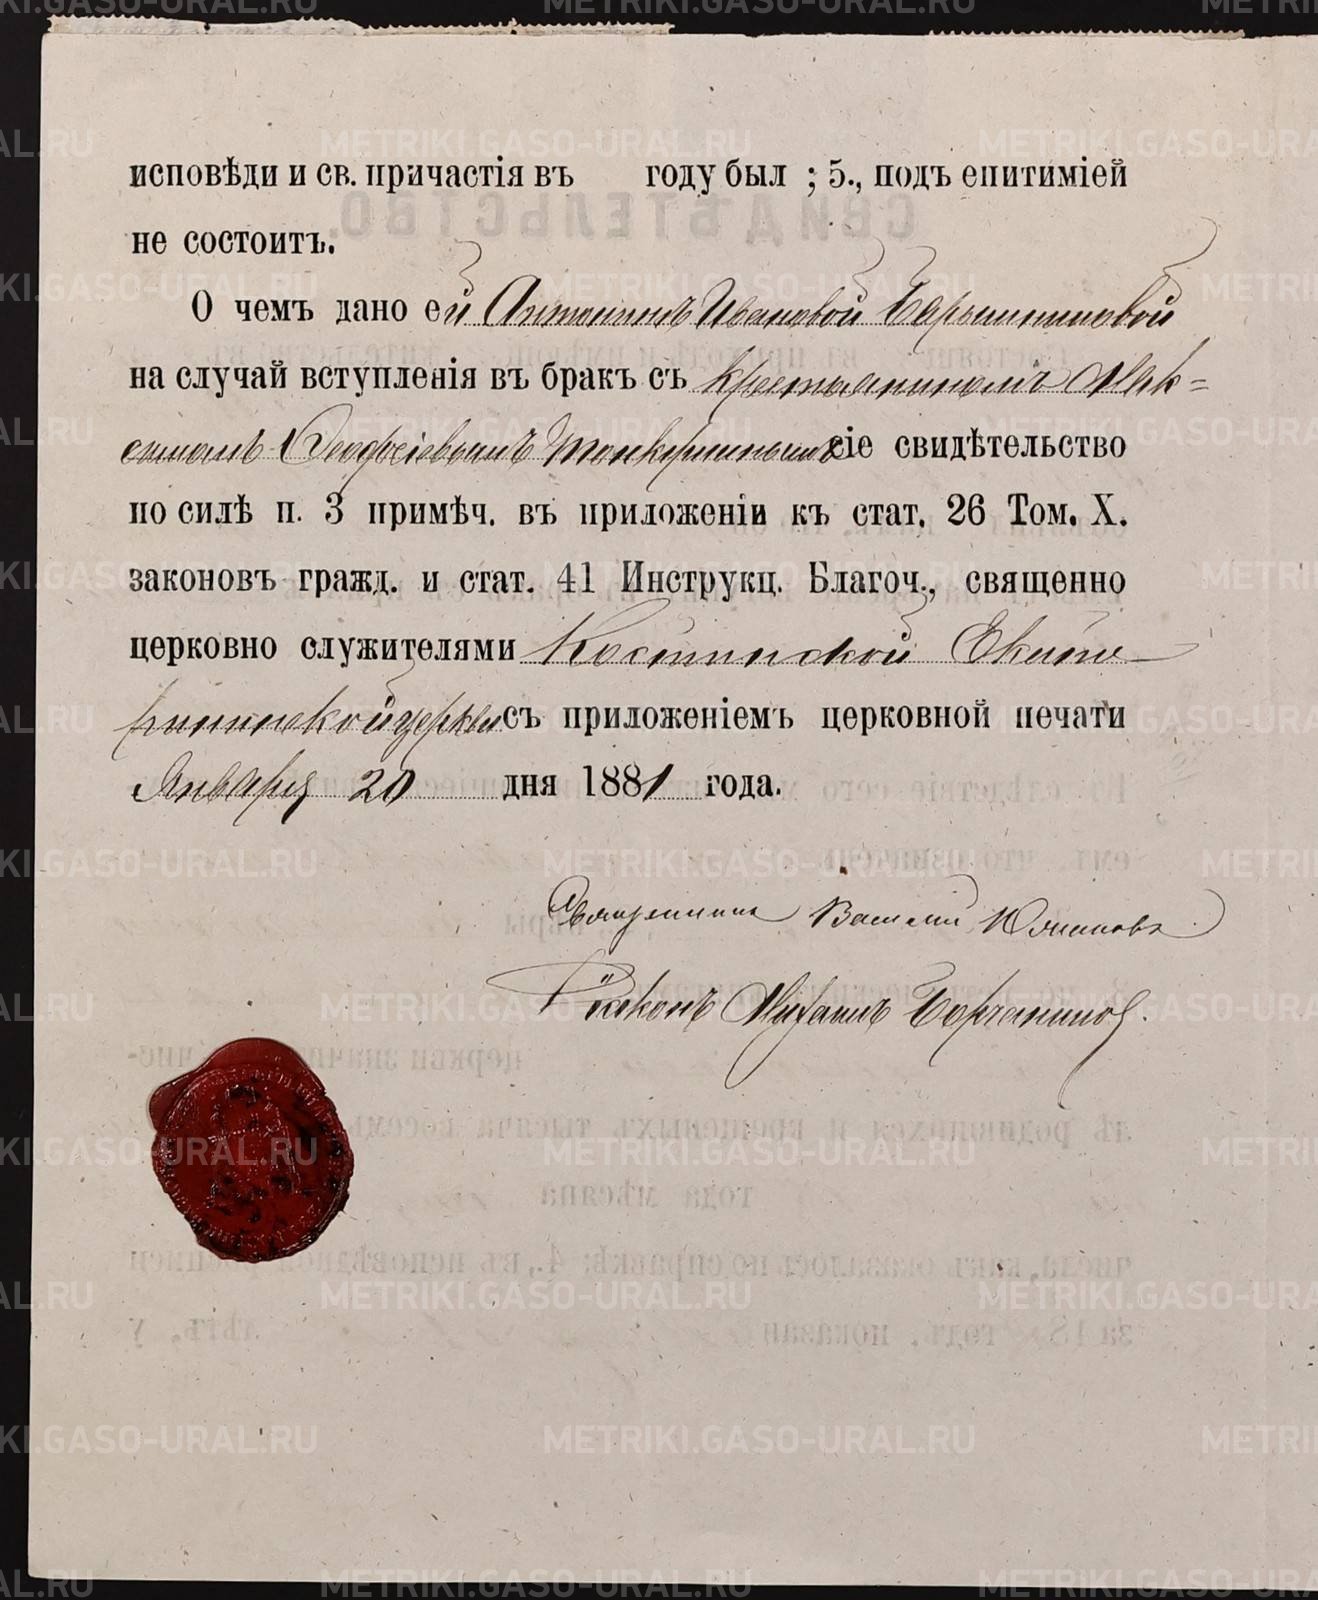 исповѣди и св. причастія въ году был ; 5., подъ епитиміей
не состоитъ.
О чемъ дано ей Антонинѣ Ивановой Барышниковой
на случай вступленія въ бракъ съ крестьяниномъ Мак=
симомъ Ѳеодосіевымъ сіе свидѣтельство
по силѣ п. 3 примѣч. въ приложеніи къ стат. 26 Том. X.
законовъ гражд. и стат. 41 Инструкц. Благоч., священно
церковно служителями Костинской Екате-
рининской церкви съ приложеніемъ церковной печати
Января 20 дня 1881 года.
Священникъ Василій
Діаконъ Михаилъ
METRIKI.GASO-URAL.RU